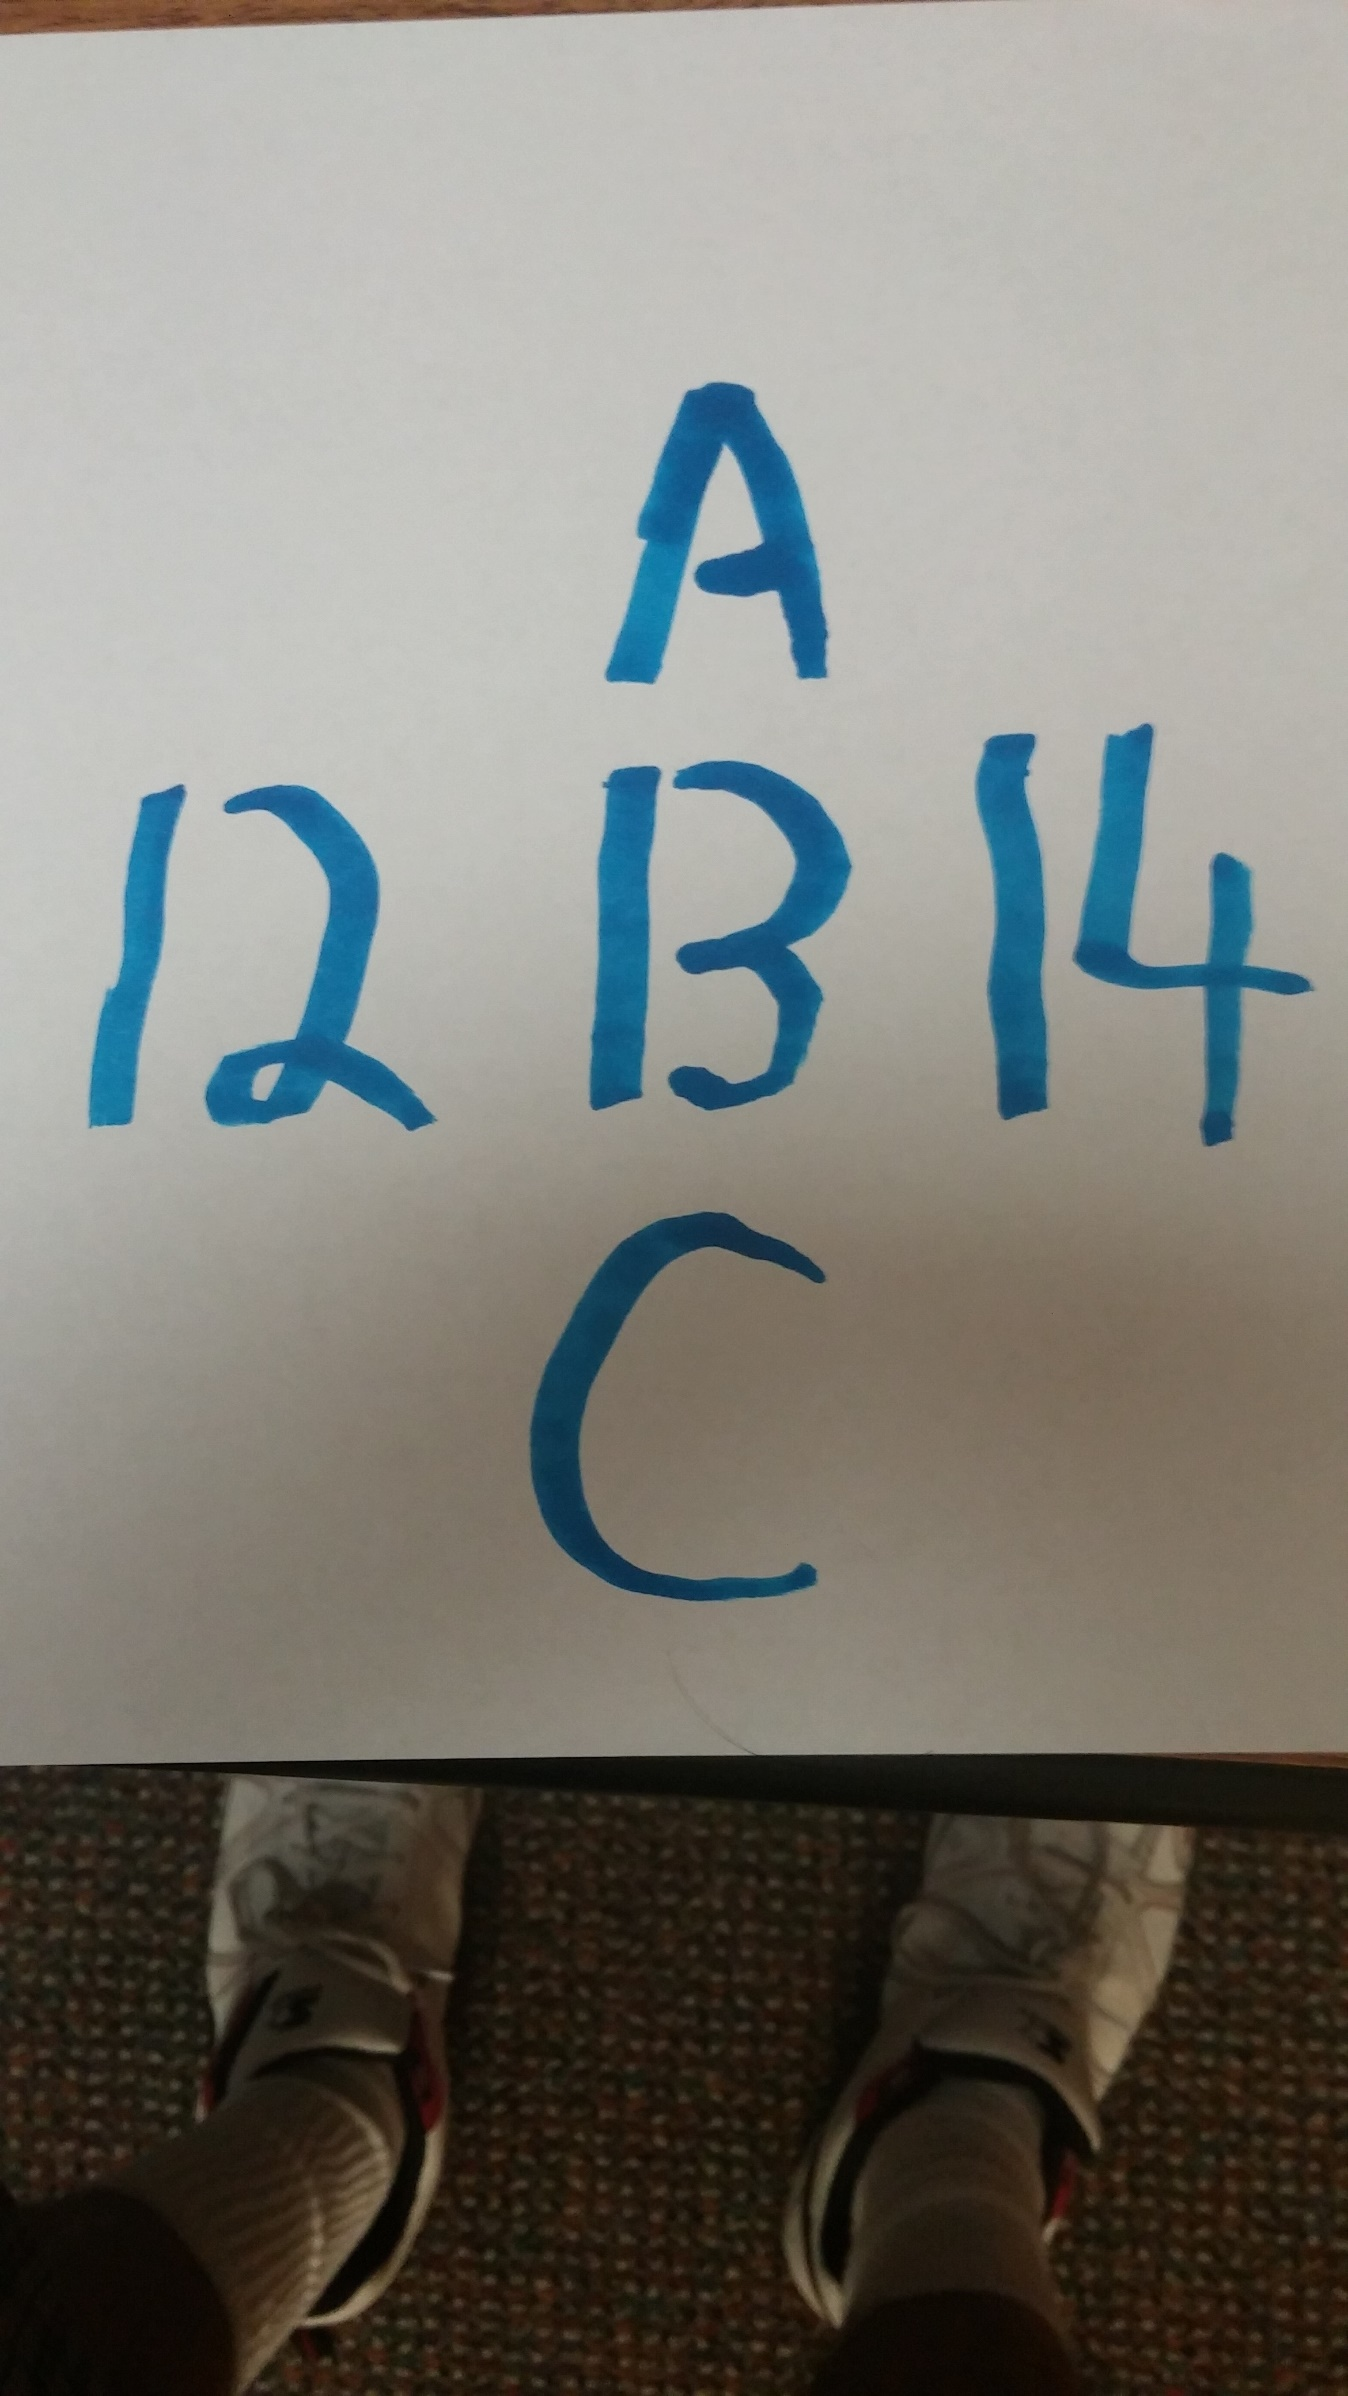 A
12 13 14
C